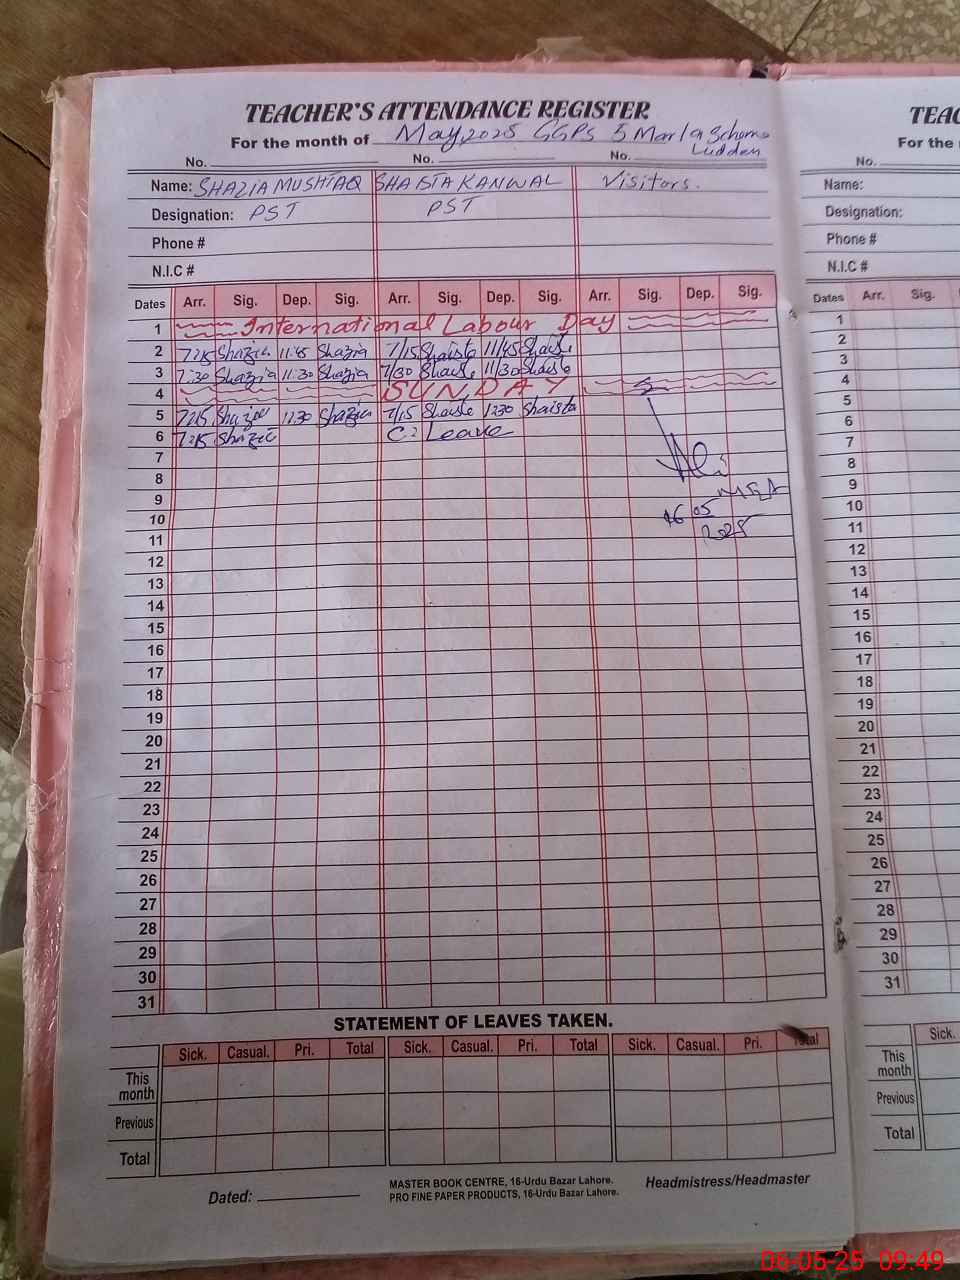 TEACHER'S ATTENDANCE REGISTER
For the month of May, 2025 GGPS 5 Marla Scheme Luddan
No. No. No.
Name: SHAZIA MUSHTAQ SHAISTA KANWAL Visitors.
Designation: PST PST
Phone #
N.I.C #
Dates Arr. Sig. Dep. Sig. Arr. Sig. Dep. Sig. Arr. Sig. Dep. Sig.
1 International Labour Day
2 7:15 Shazia 11:45 Shazia 7/15 Shaista 11/45 Shaista
3 7:30 Shazia 11:30 Shazia 7/30 Shaista 11/30 Shaista
4 SUNDAY
5 7:15 Shazia 1:30 Shazia 7/15 Shaista 1:30 Shaista
6 7:15 Shazia C: Leave
7
8
9
10
11
12
13
14
15
16
17
18
19
20
21
22
23
24
25
26
27
28
29
30
31
MEA
06 05
2025
STATEMENT OF LEAVES TAKEN.
Sick. Casual. Pri. Total Sick. Casual. Pri. Total Sick. Casual. Pri. Total
This month
Previous
Total
Dated:
MASTER BOOK CENTRE, 16-Urdu Bazar Lahore.
PRO FINE PAPER PRODUCTS, 16-Urdu Bazar Lahore.
Headmistress/Headmaster
TEAC
For the
No.
Name:
Designation:
Phone #
N.I.C #
Dates Arr. Sig.
1
2
3
4
5
6
7
8
9
10
11
12
13
14
15
16
17
18
19
20
21
22
23
24
25
26
27
28
29
30
31
Sick.
This month
Previous
Total
06-05-25 09:49